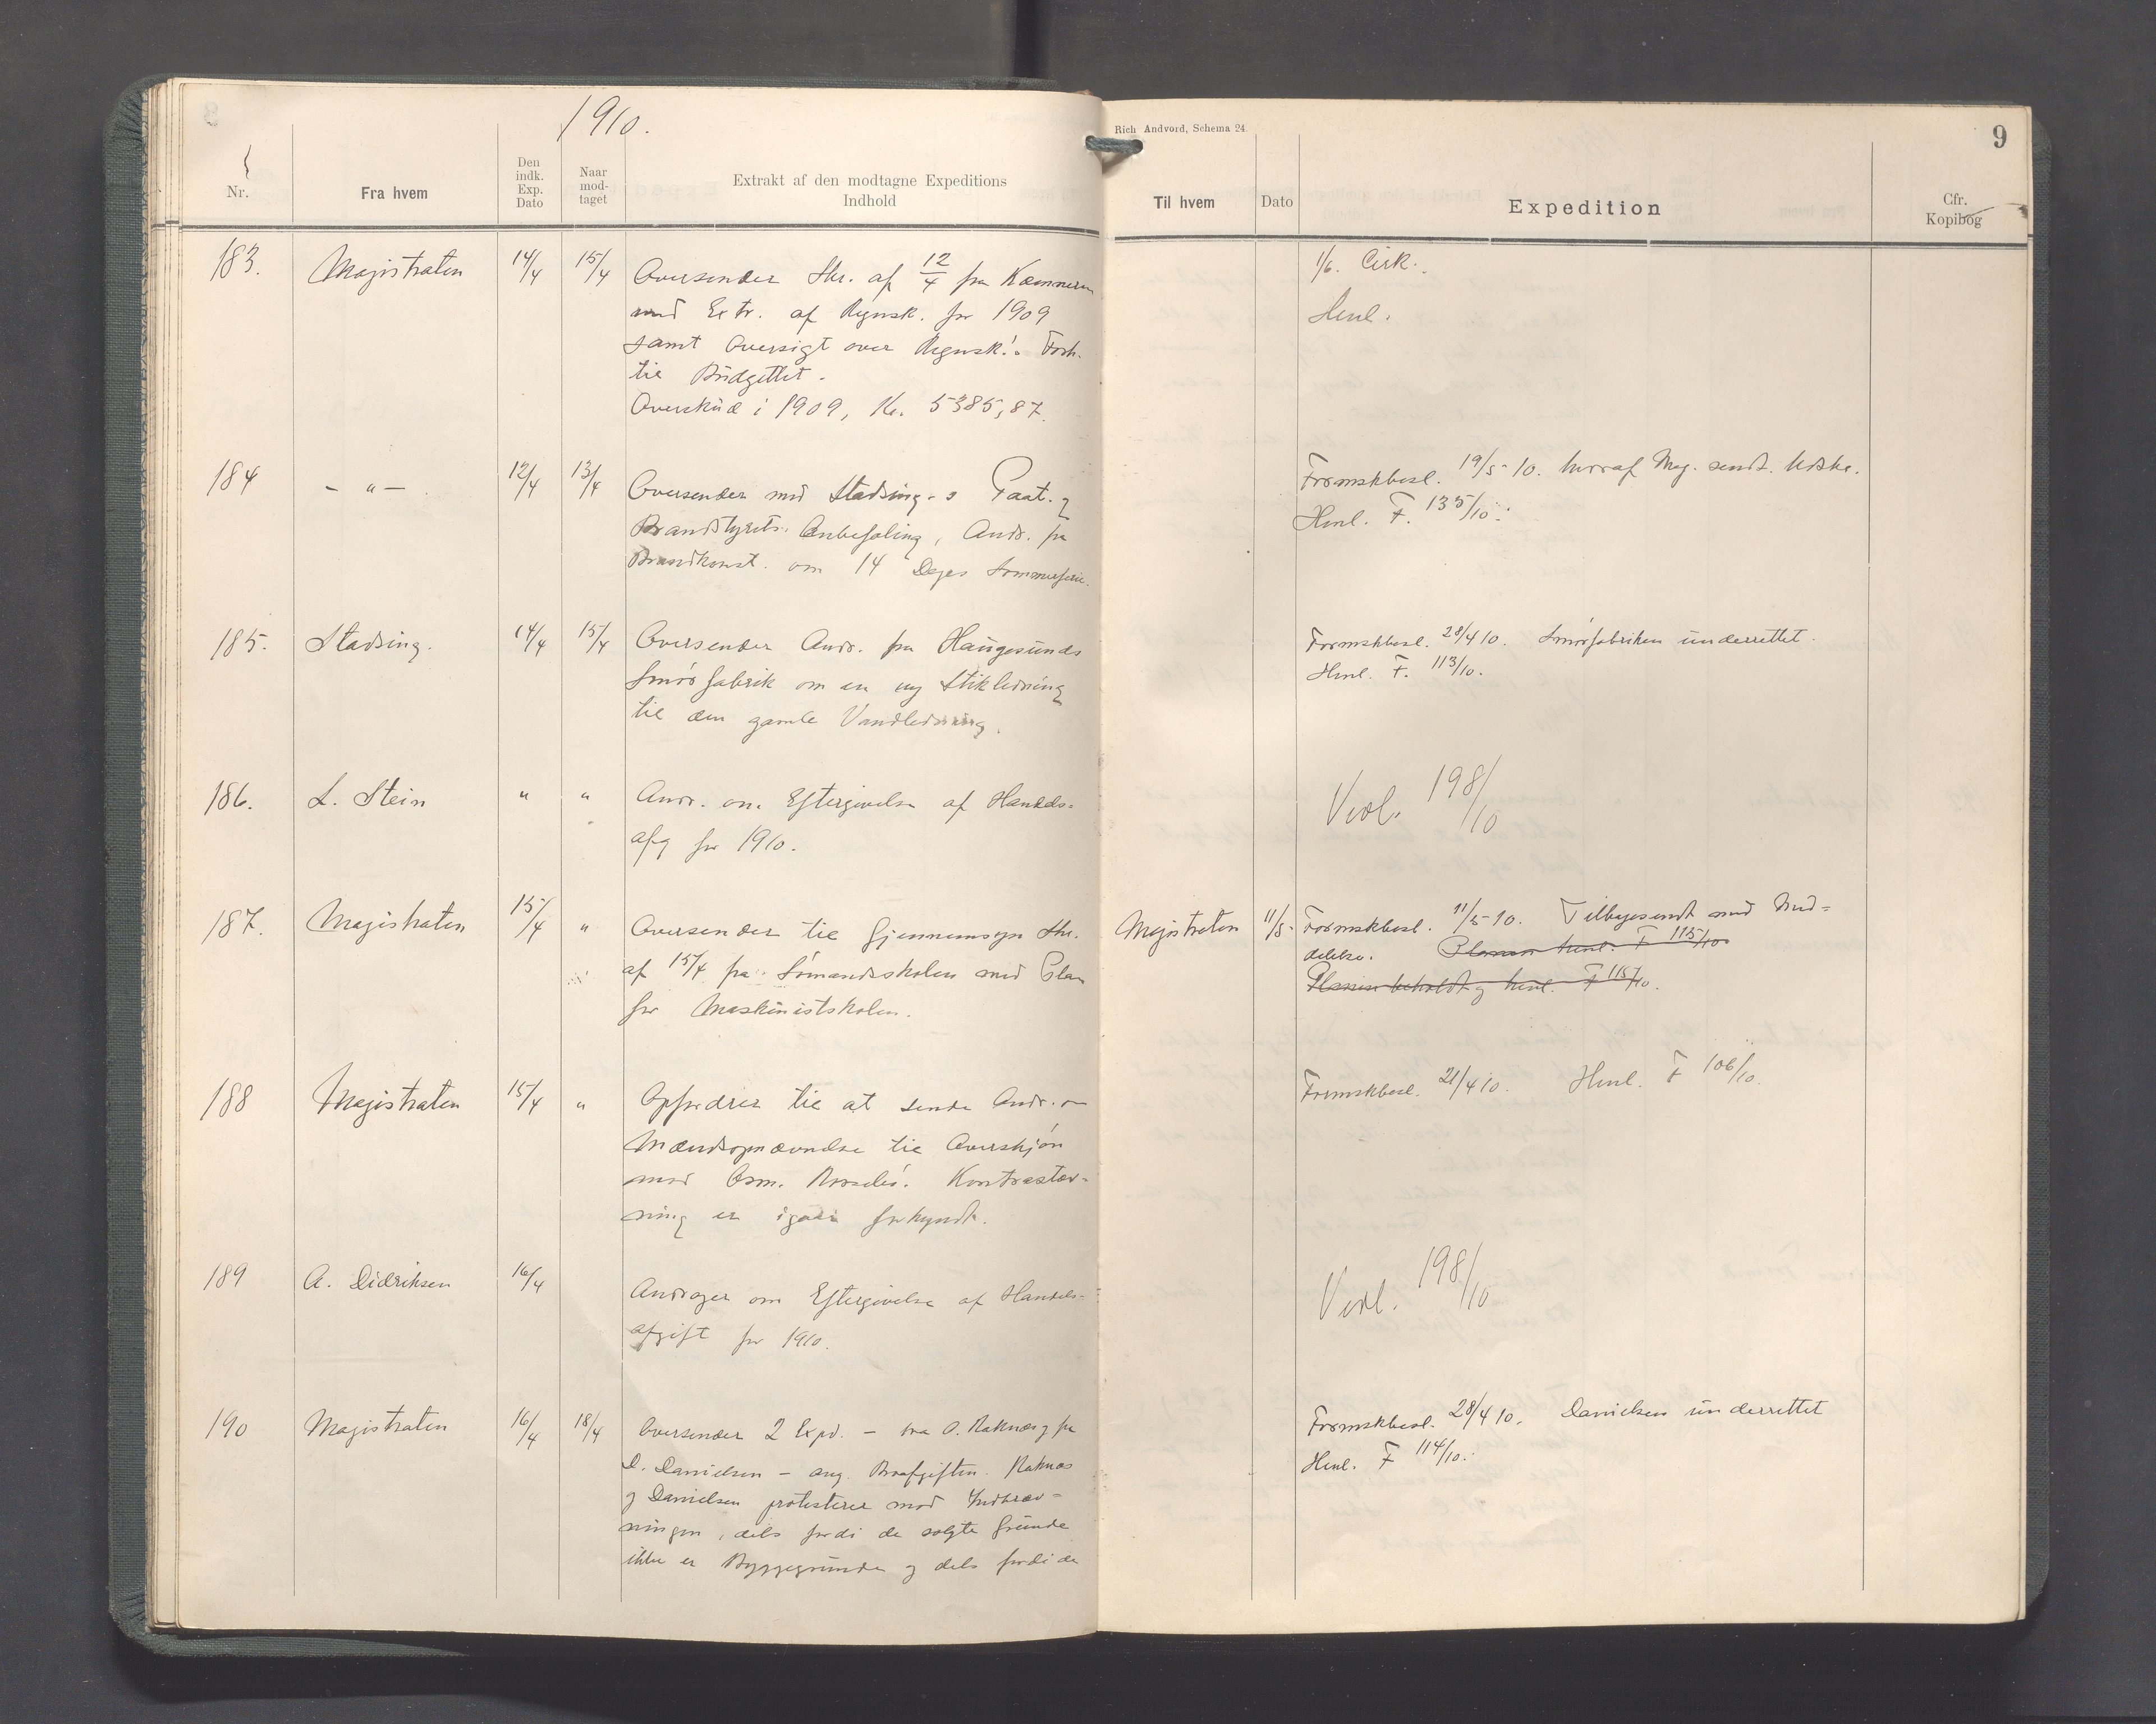 1910.
Nr.
Fra hvem
Den indk. Exp. Dato
Naar mod-taget
Extrakt af den modtagne Expeditions Indhold
Rich Andvord, Schema 24.
9
Til hvem
Dato
Expedition
Cfr. Kopibog
183. Magistraten 14/4 15/4 Oversender Skr. af 12/4 fra Kæmneren
med Extr. af Regnsk. for 1909
samt Oversigt over Regnsk.'s Forh.
til Budgettet.
Overskud i 1909, Kr. 5385,87.
1/6. Cirk.
Henl.
184 - " - 12/4 13/4 Oversender med Stadsing.s Paat. og
Brandstyrets Anbefaling, Andr. fra
Brandkonst. om 14 Dages Sommerferie.
Formskbesl. 19/5 10. hvoraf Mag. sendt Udskr.
Henl. F. 135/10.
185. Stadsing. 14/4 15/4 Oversender Andr. fra Haugesunds
Smørfabrik om en ny Stikledning
til den gamle Vandledning.
Formskbesl. 28/4 10. Smørfabriken underrettet.
Henl. F. 113/10.
186. L. Stein " " Andr. om Eftergivelse af Handels-
afg for 1910.
Vedl. 198/10
187. Magistraten 15/4 " Oversender til Gjennemsyn Skr.
af 15/4 fra Sømandsskolen med Plan
for Maskinistskolen.
Magistraten 11/5 Formskbesl. 11/5 10. Tilbagesendt med Med-
delelse. Planen henl. F 115/10
Planen beholdt og henl. F 115/10.
188 Magistraten 15/4 " Opfordrer til at sende Andr. om
Mændsopnævnelse til Overskjøn
mod Osm. . Kontrastæv-
ning er igaar forkyndt.
Formskbesl. 21/4 10. Henl. F 106/10.
189 A. Didriksen 16/4 Andrager om Eftergivelse af Handels-
afgift for 1910.
Vedl. 198/10
190 Magistraten 16/4 18/4 Oversender 2 Expd. - fra O. Raknæs og fra
D. Danielsen - ang. . Raknæs
og Danielsen protesterer mod Indkræv-
ningen, dels fordi de solgte Grunde
ikke er Byggegrunde og dels fordi de
Formskbesl. 28/4 10. Danielsen underrettet
Henl. F 114/10.